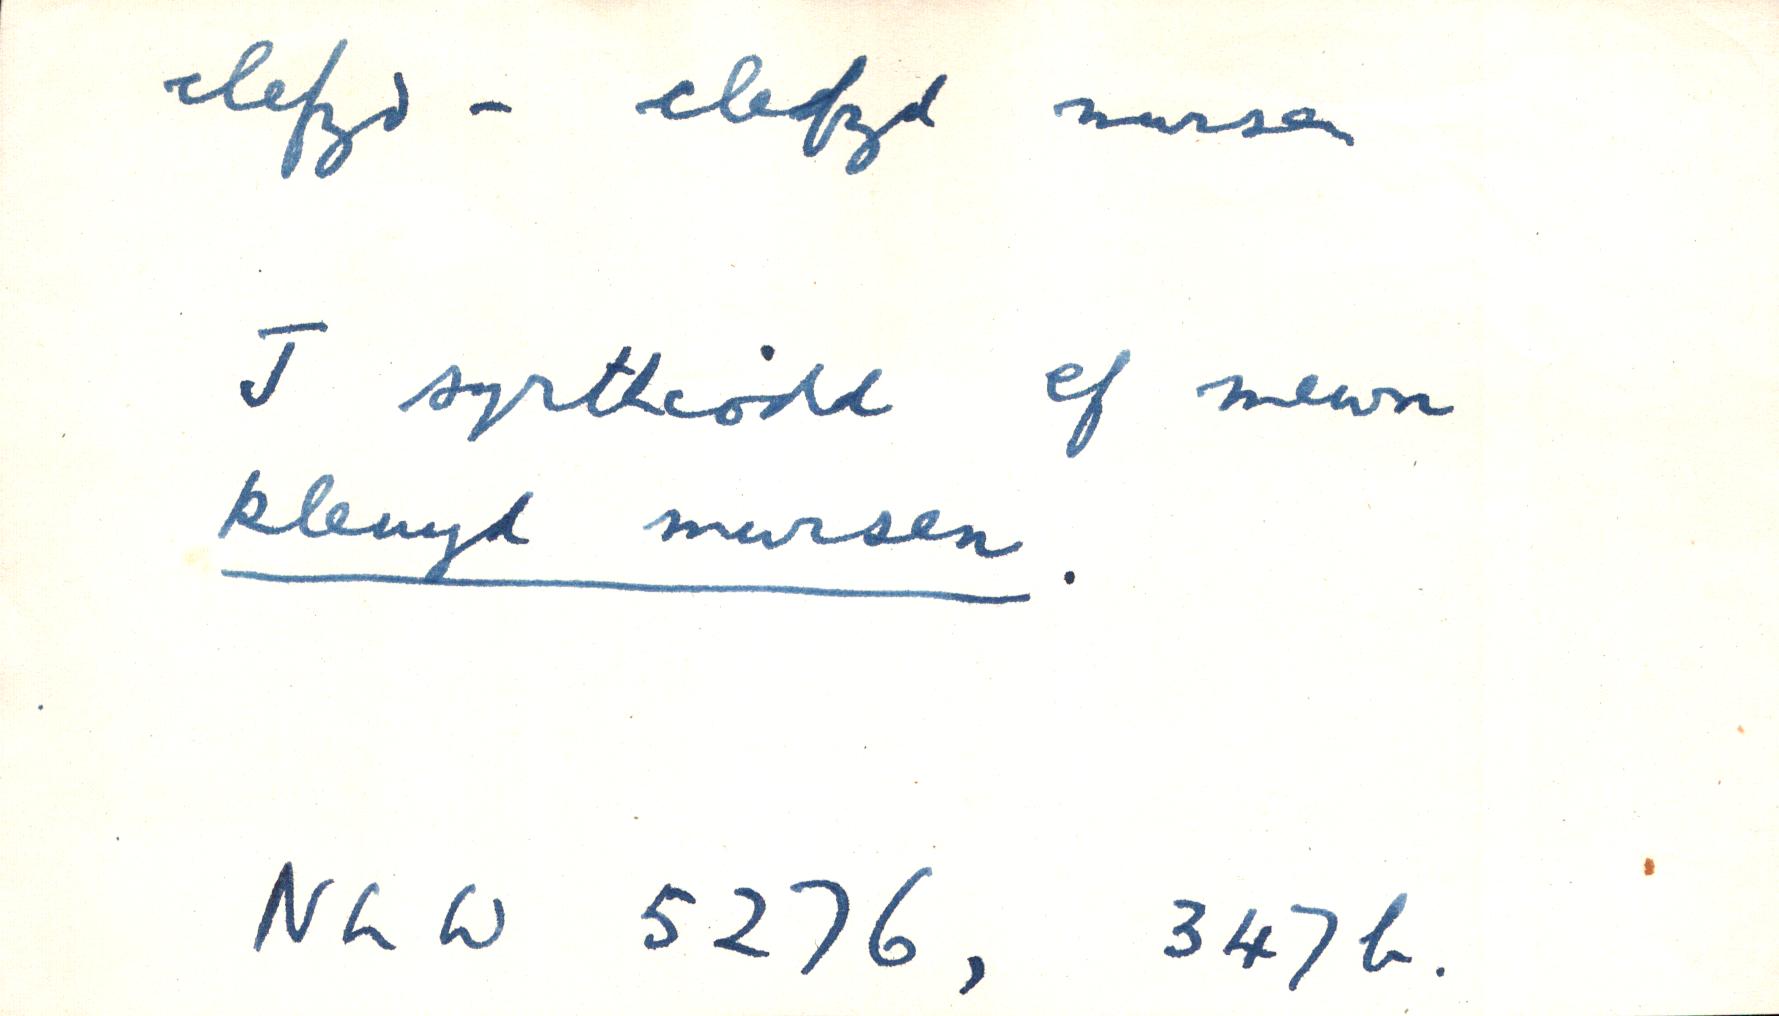 clefyd - clefyd mursen
I syrthiodd ef mewn
klevyd mursen.
NLW 5276, 347b.